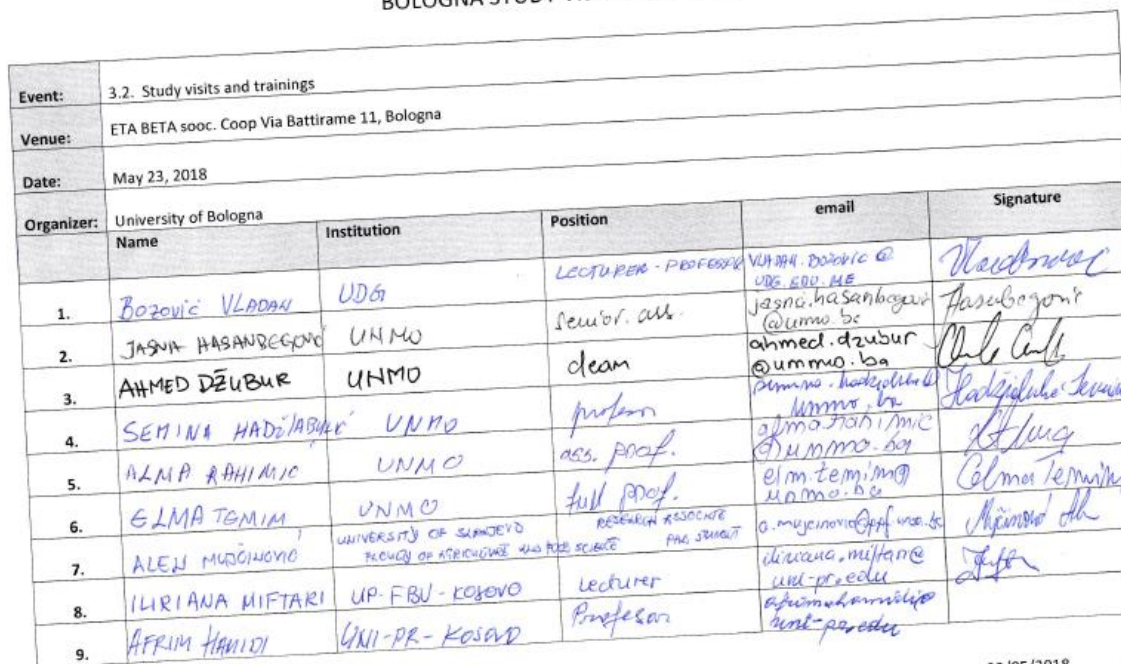 BOLOGNA STUDY
Event: 3.2. Study visits and trainings
Venue: ETA BETA sooc. Coop Via Battirame 11, Bologna
Date: May 23, 2018
Organizer: University of Bologna
Name Institution Position email Signature
1. Bozović VLADAN UDG LECTURER - PROFESSOR VLADAN.BOZOVIC@
UDG.EDU.ME
2. JASNA HASANBEGOVIĆ UNMO senior. ass. jasna.hasanbegovic
@unmo.ba
3. AHMED DŽUBUR UNMO dean ahmed.dzubur
@unmo.ba
4. SEMINA UNMO
5. ALMA RAHIMIC UNMO ass. prof. alma.rahimic
@unmo.ba
6. ELMA TEMIM UNMO full prof. elm.temim@
unmo.ba Elma Temim
7. ALEN MUJČINOVIĆ UNIVERSITY OF SARAJEVO
FACULTY OF AGRICULTURE AND FOOD SCIENCE RESEARCH ASSOCIATE
8. ILIRIANA MIFTARI UP-FBV-KOSOVO Lecturer iliriana.miftari@
uni-pr.edu
9. AFRIM HAMIDI UNI-PR-KOSOVO Profesor
uni-pr.edu
/05/2018